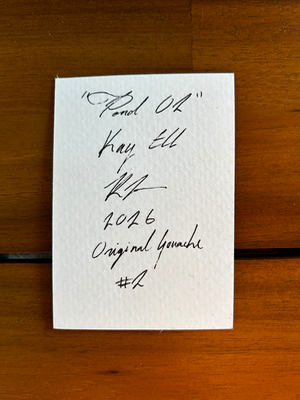 "Pond 02"
Kay Ell
2026
Original Gouache
#2